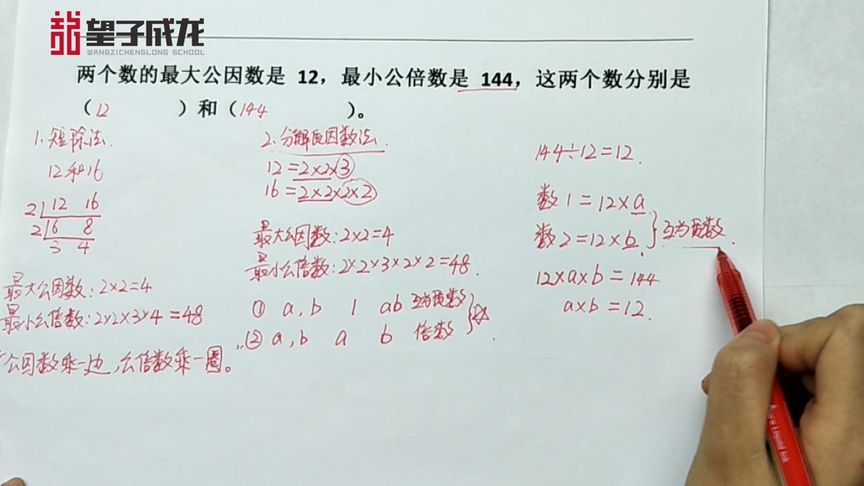 望子成龙
WANGZICHENGLONG SCHOOL
两个数的最大公因数是 12，最小公倍数是 144，这两个数分别是
（12 ）和（144 ）。
1.短除法.
12和16
2 12 16
2 6 8
3 4
最大公因数：2×2=4
最小公倍数：2×2×3×4=48
公因数乘一边，公倍数乘一圈。
2.分解质因数法.
12=2×2×3
16=2×2×2×2
最大公因数：2×2=4
最小公倍数：2×2×3×2×2=48.
① a,b 1 ab 互为质数
② a,b a b 倍数
144÷12=12.
数1=12×a
数2=12×b.
互为质数.
12×a×b=144
a×b=12.